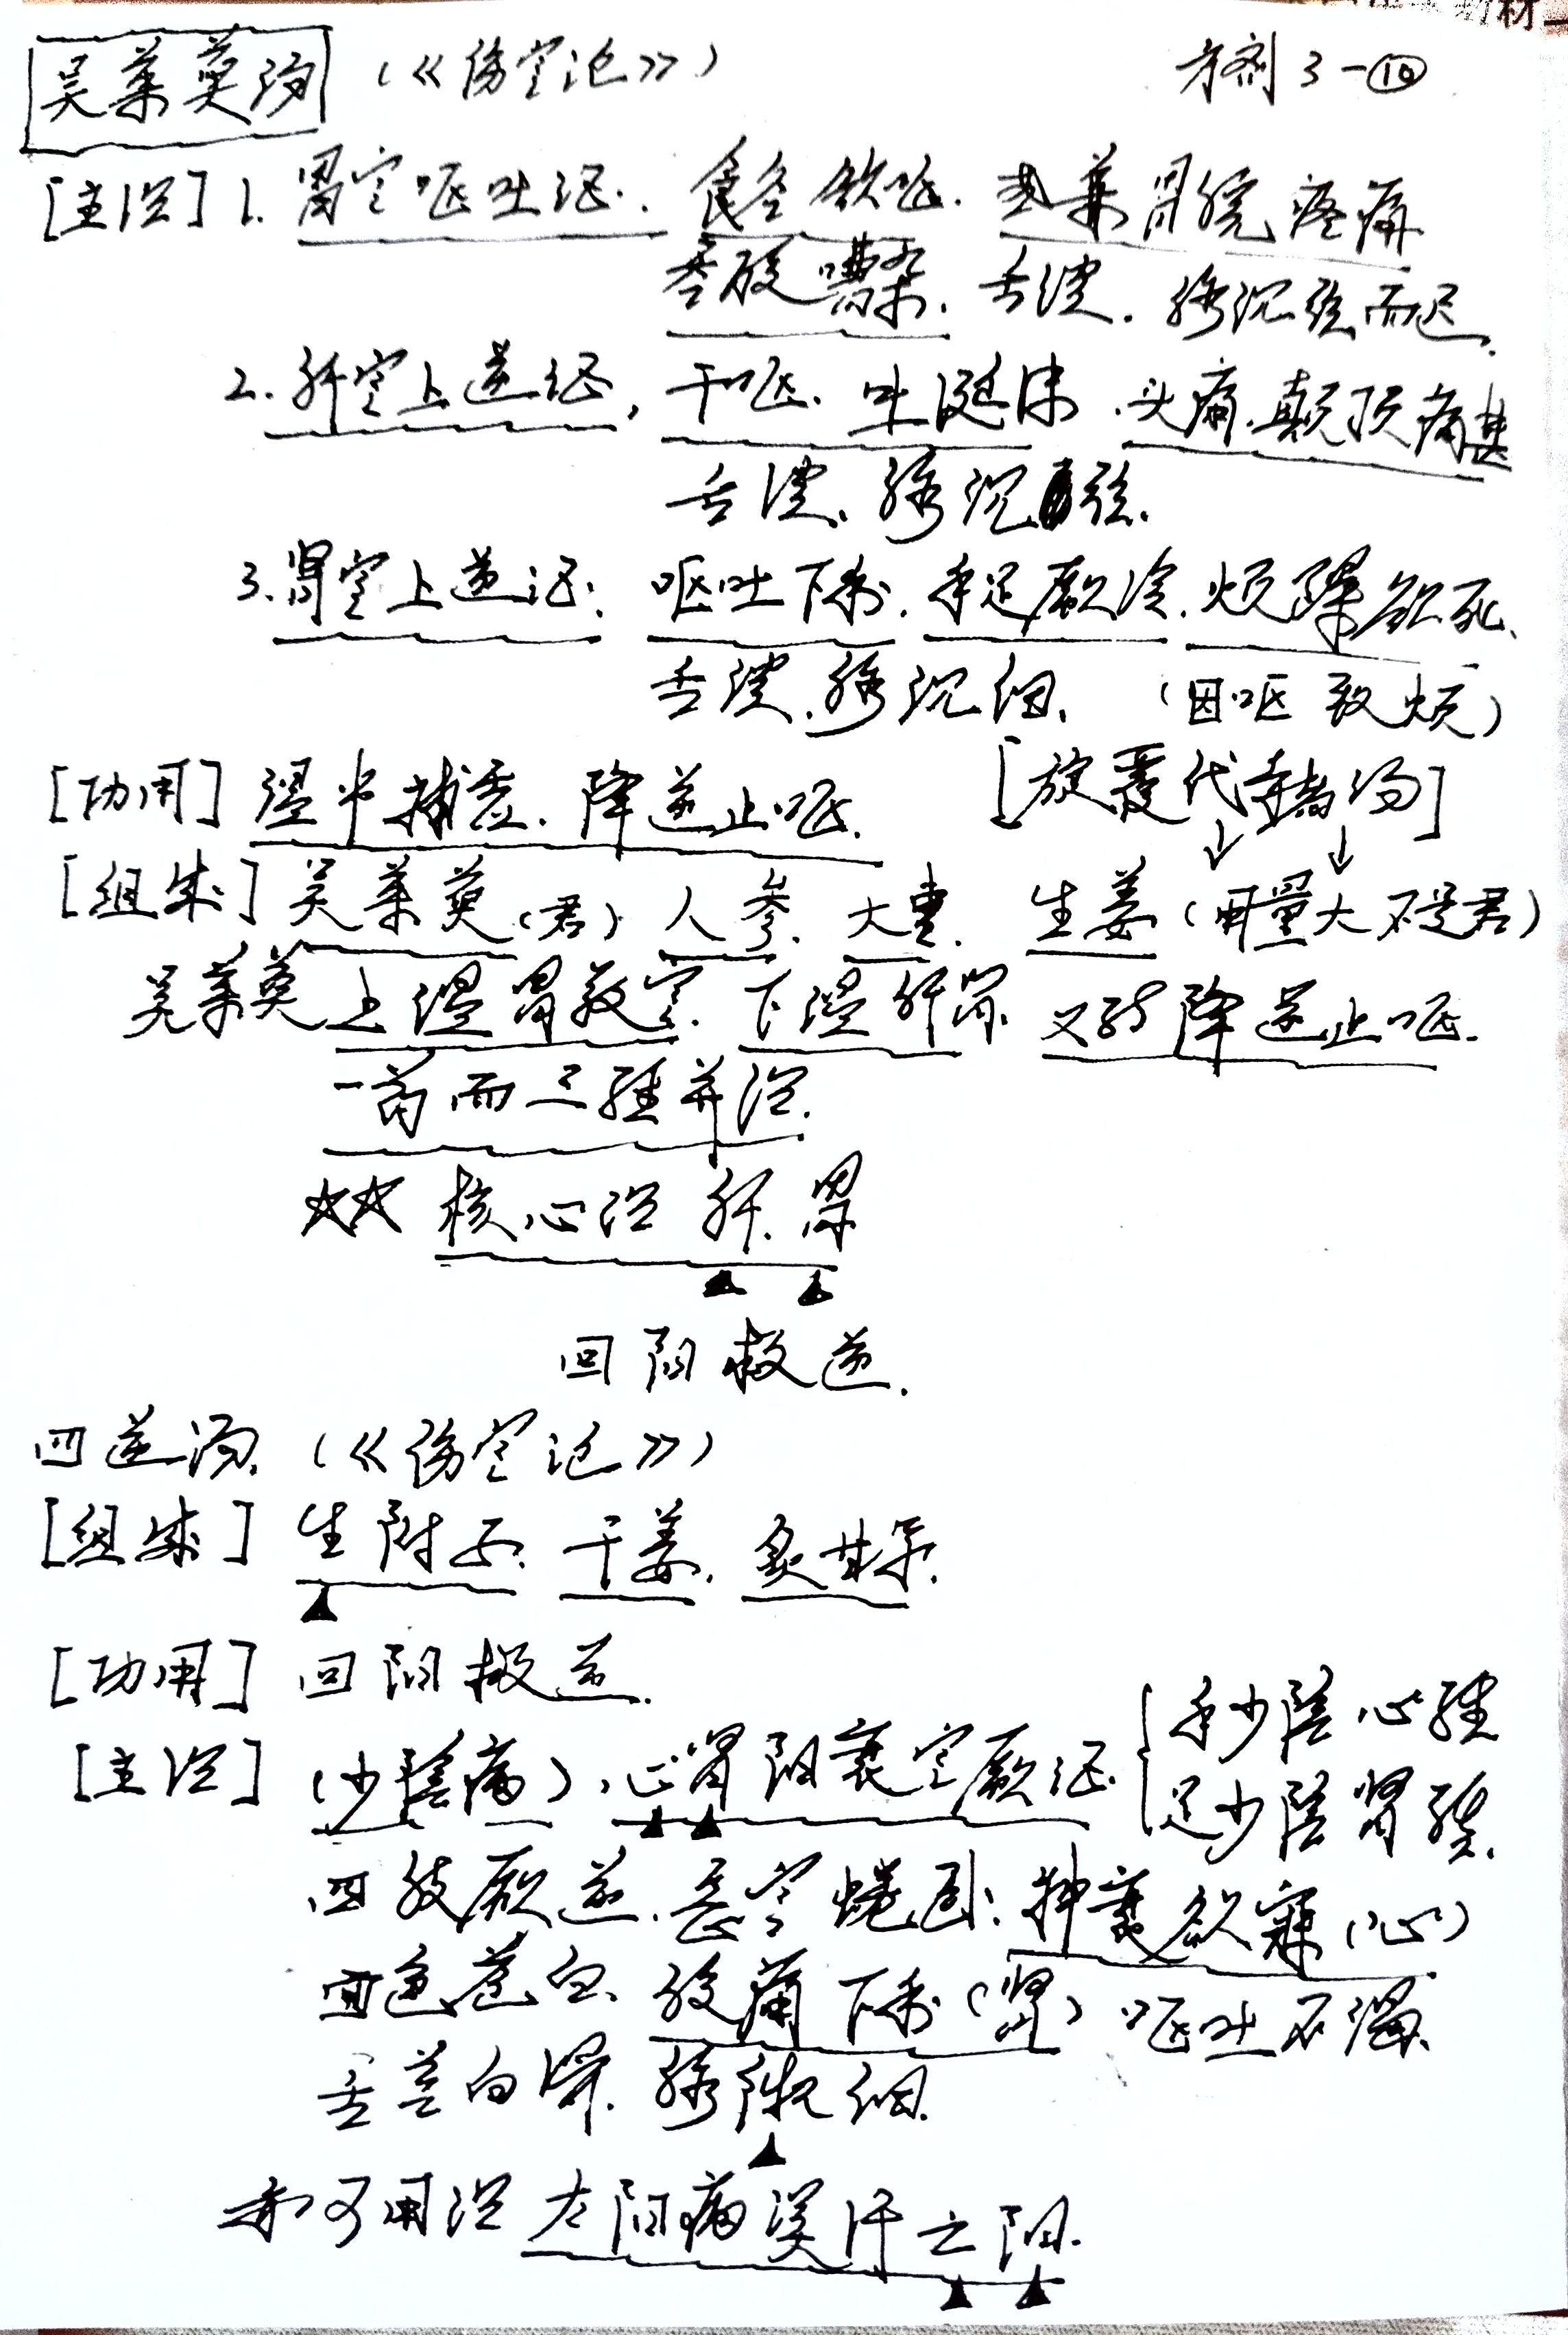 吴茱萸汤 (《伤寒论》) 方剂3-⑩
[主治] 1. 胃寒呕吐证. 食谷欲呕. 或兼胃脘疼痛
吞酸嘈杂. 舌淡. 脉沉弦而迟.
2. 肝寒上逆证, 干呕. 吐涎沫. 头痛. 颠顶痛甚
舌淡. 脉沉弦.
3. 肾寒上逆证: 呕吐下利. 手足厥冷. 烦躁欲死.
舌淡. 脉沉细. (因呕致烦)
[功用] 温中补虚. 降逆止呕. [旋覆代赭汤]
[组成] 吴茱萸(君) 人参. 大枣. 生姜(用量大不是君)
吴茱萸上温胃散寒. 下温肝肾 又能降逆止呕.
一药而三经并治.
☆☆ 核心治肝. 胃
回阳救逆.
四逆汤. (《伤寒论》)
[组成] 生附子. 干姜. 炙甘草.
[功用] 回阳救逆.
[主治] (少阴病). 心肾阳衰寒厥证. {手少阴心经
足少阴肾经.
四肢厥逆. 恶寒蜷卧. 神衰欲寐(心)
面色苍白. 腹痛下利(肾) 呕吐不渴.
舌苔白滑. 脉微细.
亦可用治太阳病误汗亡阳.